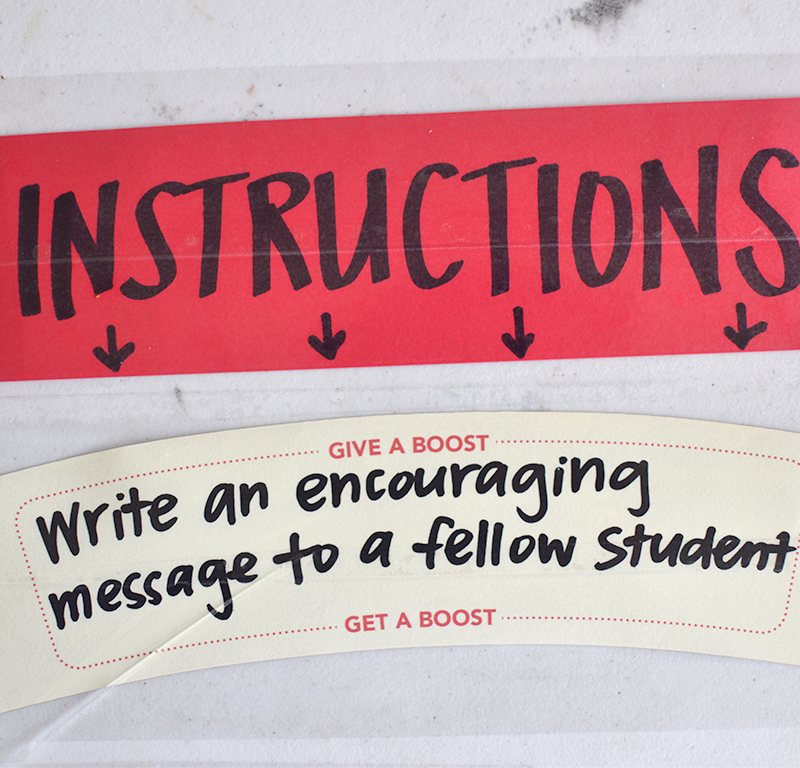 INSTRUCTIONS
GIVE A BOOST
Write an encouraging
message to a fellow student
GET A BOOST